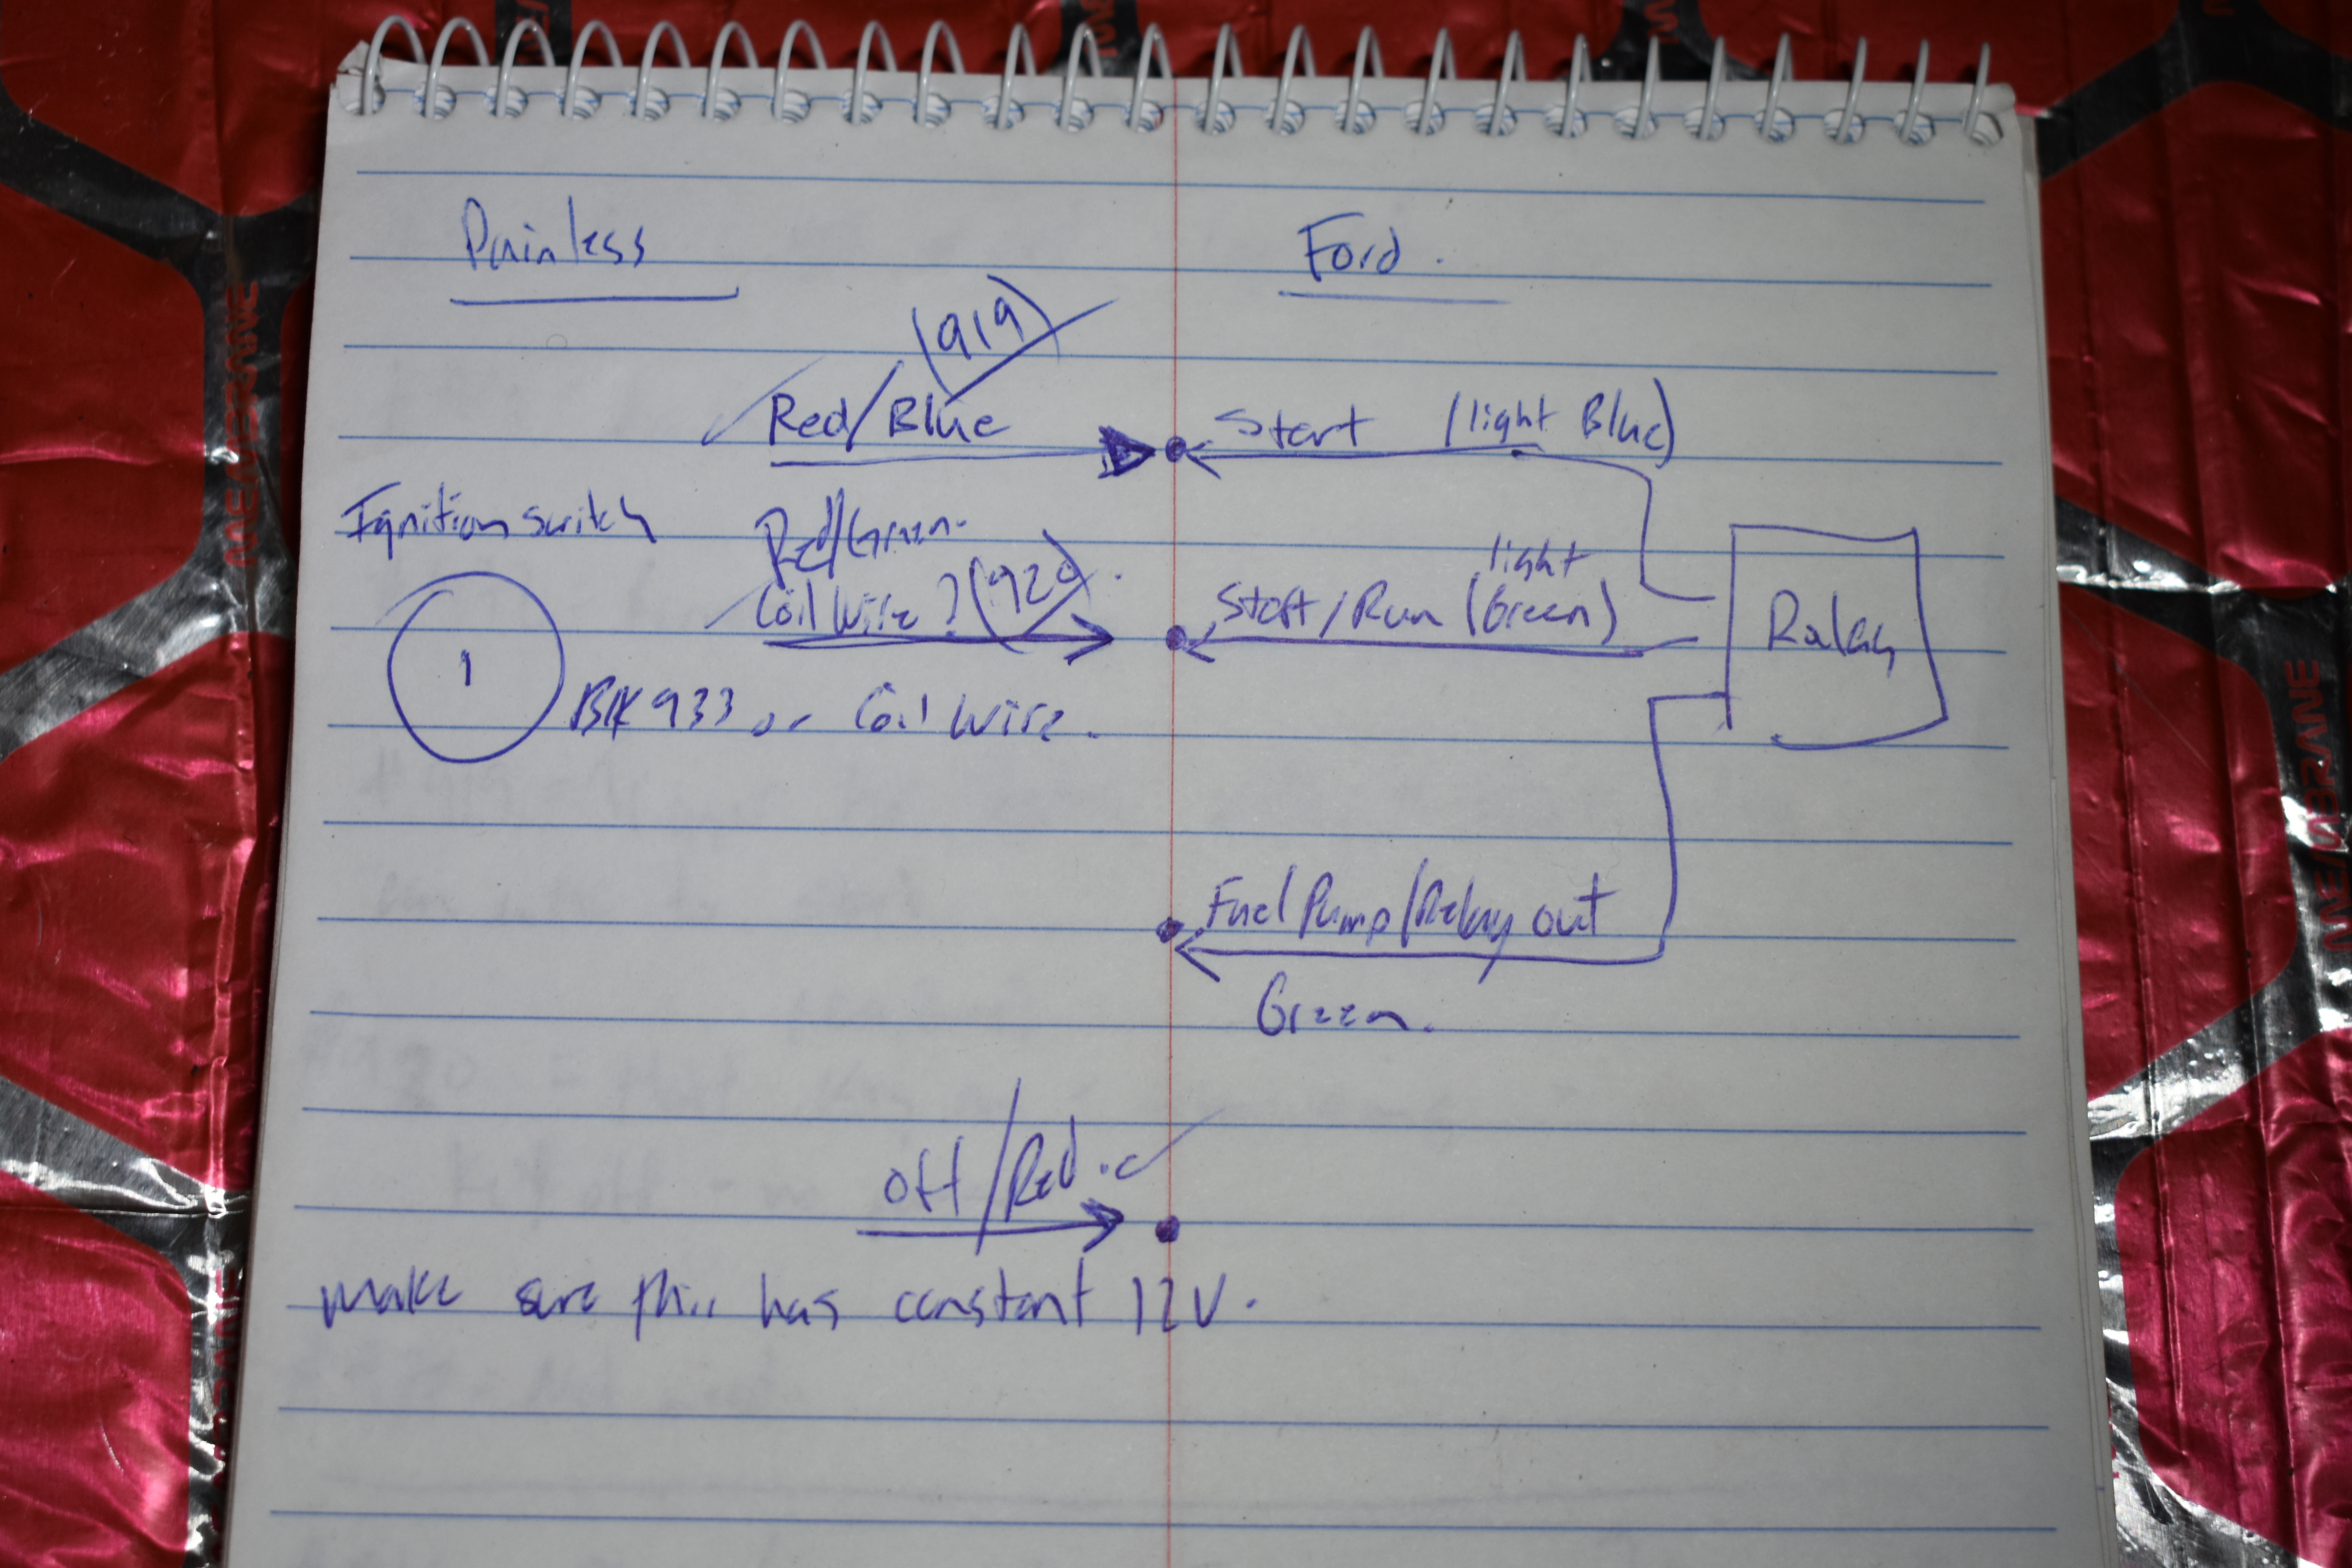 Painless
Ford.
(919)
Red/Blue
Start (light Blue)
Ignition switch
Red/Green.
light
Coil Wire? (920)
Start/Run (Green)
Relay
1
BK 933 or Coil Wire.
Fuel Pump/Relay out
Green.
off/Red.
make sure this has constant 12V.
MEMBRANE
MEMBRANE
MEMBRANE